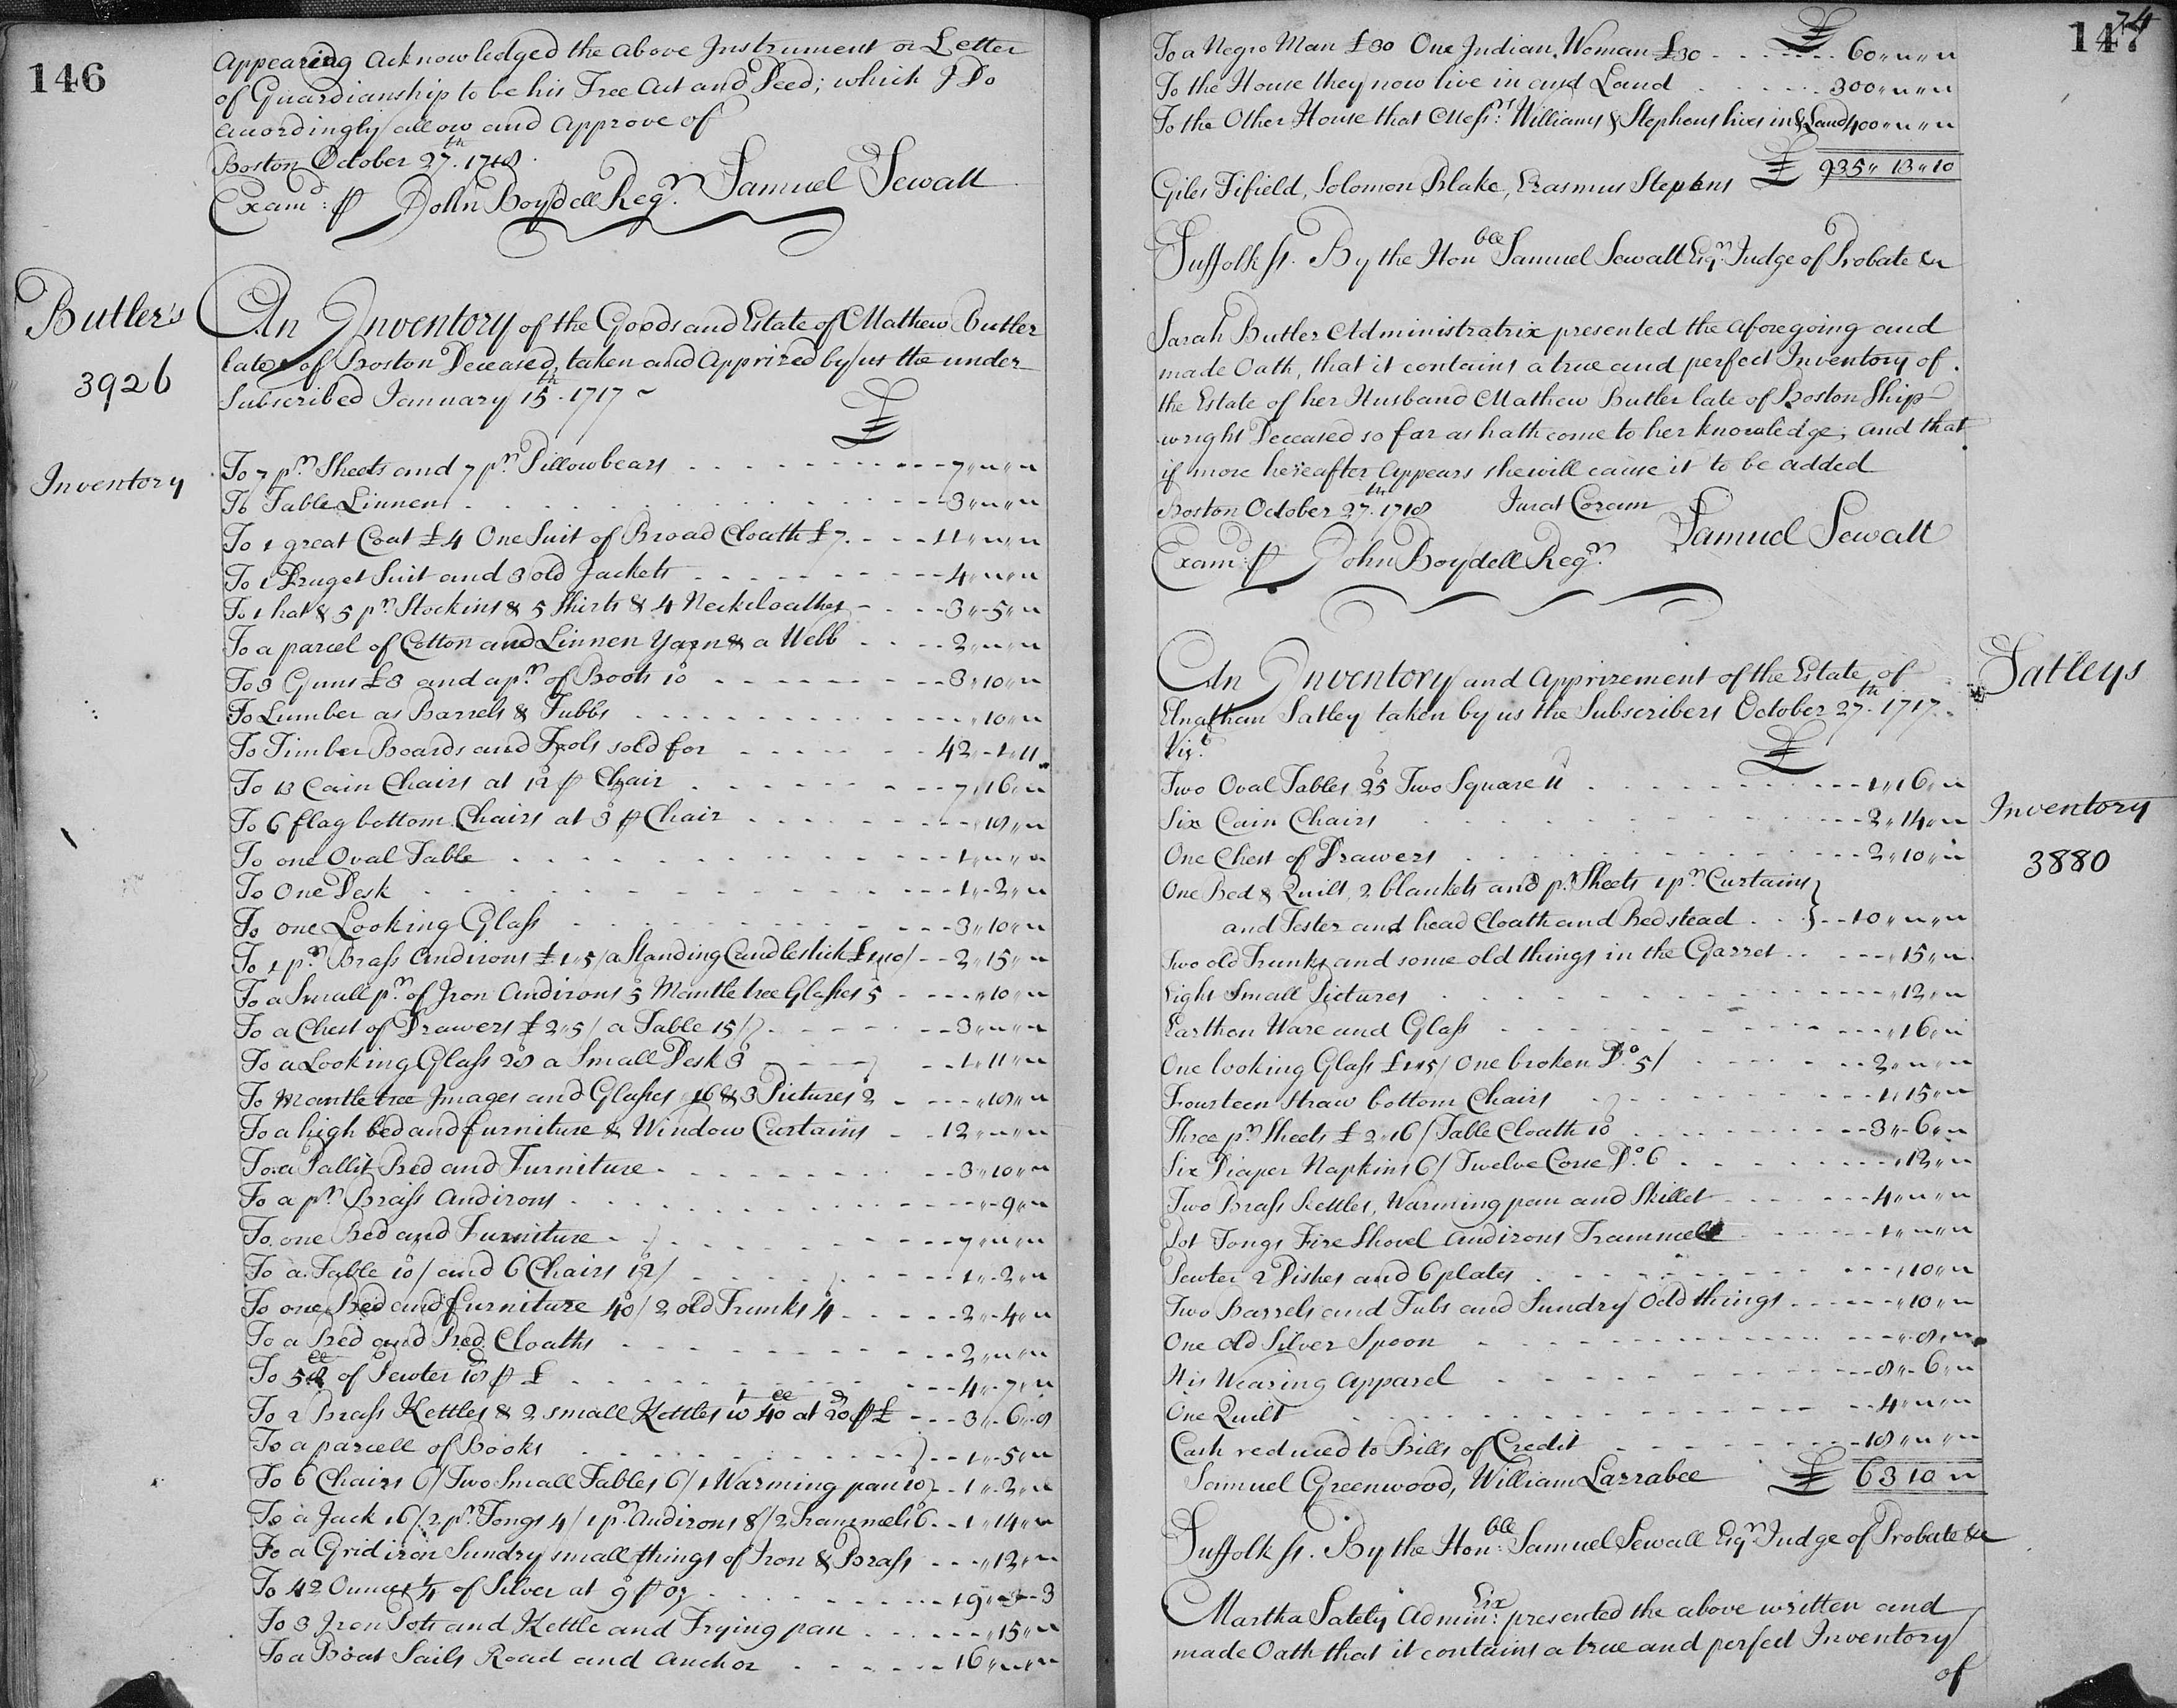 146
Appearing Acknowledged the above Instrument or Letter
of Guardianship to be his Free Act and Deed; which I Do
accordingly allow and approve of
Boston October 27th. 1718.
Samuel Sewall
Examd: p John Boydell Regr.
Butler's
3926
Inventory
An Inventory of the Goods and Estate of Mathew Butler
late of Boston Deceased, taken and Apprized by us the under
Subscribed January 15th. 1717 ~
£
To 7 pr. Sheets and 7 pr. Pillowbears - - - 7 " " "
To Table Linnen - - - 3 " " "
To 1 great Coat £4 One Suit of Broad Cloath £7. - - - 11 " " "
To 1 Druget Suit and 3 old Jackets - - - 4 " " "
To 1 hat & 5 pr. Stockins & 5 Shirts & 4 Neckcloathes - - - 3 " 5 "
To a parcel of Cotton and Linnen Yarn & a Webb - - - 2 " " "
To 3 Guns £3 and a pr. of Boots 10 - - - 3 " 10 "
To Lumber as Barrels & Tubbs - - - " 10 "
To Timber Boards and Tools sold for - - - 42 " 1 " 11
To 13 Cain Chairs at 12 p Chair - - - 7 " 16 "
To 6 flag bottom Chairs at 3 p Chair - - - " 18 "
To one Oval Table - - - 1 " " "
To One Desk - - - 1 " 2 "
To one Looking Glass - - - 3 " 10 "
To 1 pr. Brass Andirons £1 " 5/ a Standing Candlestick £1 " 10/ - - 2 " 15 "
To a Small pr. of Iron Andirons 5 Mantle tree Glasses 5 - - - " 10 "
To a Chest of Drawers £2 " 5/ a Table 15/ - - - 3 " " "
To a Looking Glass 28 a Small Desk 3 - - - 1 " 11 "
To Mantle tree Images and Glasses 16 & 3 Pictures 2 - - - " 18 "
To a high bed and furniture & Window Curtains - - 12 " " "
To a Pallit Bed and Furniture - - - 3 " 10 "
To a pr. Brass Andirons - - - " 9 "
To one Bed and Furniture - - - 7 " " "
To a Table 10/ and 6 Chairs 12/ - - - 1 " 2 "
To one Bed and furniture 40/ 2 old Trunks 4 - - - 2 " 4 "
To a Bed and Bed Cloaths - - - 2 " " "
To 58 of Pewter 18d p £ - - - 4 " 7 "
To 2 Brass Kettles & 2 small Kettles wt 40 at 20d p £ - - - 3 " 6 " 8
To a parcell of Books - - - 1 " 5 "
To 6 Chairs 6/ Two Small Tables 6/ 1 Warming pan 10 - - 1 " 2 "
To a Jack 16/ 2 pr. Tongs 4/ 1 pr. Andirons 8/ 2 Trammels 6 - - 1 " 14 "
To a Gridiron Sundry small things of Iron & Brass - - - " 12 "
To 42 Ounces 1/4 of Silver at 9 p oz - - - 19 " " 3
To 3 Iron Pots and Kettle and Frying pan - - - " 15 "
To a Boat Sails Road and Anchor - - - 16 " " "
147
74
£
To a Negro Man £30 One Indian Woman £30 - - - 60 " " "
To the House they now live in and Land - - - 300 " " "
To the Other House that Messrs. Williams & Stephens lives in & Land 400 " " "
£ 935 " 13 " 10
Giles Fifield, Solomon Blake, Erasmus Stephens
Suffolk ss. By the Honble Samuel Sewall Esqr. Judge of Probate &c
Sarah Butler Administratrix presented the aforegoing and
made Oath, that it contains a true and perfect Inventory of
the Estate of her Husband Mathew Butler late of Boston Ship-
wright Deceased so far as hath come to her knowledge; and that
if more hereafter Appears she will cause it to be added
Boston October 27th. 1718 Jurat Coram
Samuel Sewall
Examd: p John Boydell Regr.
Satleys
Inventory
3880
An Inventory and Apprizement of the Estate of
Elnathan Satley taken by us the Subscribers October 27th. 1717.
Vizt.
£
Two Oval Tables 25 Two Square 11 - - - 1 " 16 "
Six Cain Chairs - - - 2 " 14 "
One Chest of Drawers - - - 2 " 10 "
One Bed & Quilt, 2 blankets and pr. Sheets 1 pr. Curtains }
and Tester and head Cloath and Bedstead - - } - - 10 " " "
Two old Trunks and some old things in the Garret - - - " 15 "
Eight Small Pictures - - - " 12 "
Earthen Ware and Glass - - - " 16 "
One looking Glass £1 " 15/ One broken Do. 5/ - - - 2 " " "
Fourteen Straw bottom Chairs - - - 1 " 15 "
Three pr. Sheets £2 " 16/ Table Cloath 10 - - - 3 " 6 "
Six Diaper Napkins 6/ Twelve Corse Do. 6 - - - " 12 "
Two Brass Kettles, Warming pan and Skillet - - - 4 " " "
Pot Tongs Fire Shovel Andirons Trammell - - - 1 " " "
Pewter 2 Dishes and 6 plates - - - " 10 "
Two Barrels and Tubs and Sundry Odd things - - - " 10 "
One Old Silver Spoon - - - " 8 "
His Wearing Apparel - - - 8 " 6 "
One Quilt - - - 4 " " "
Cash reduced to Bills of Credit - - - 18 " " "
Samuel Greenwood, William Larrabee £ 63 10 "
Suffolk ss. By the Honble: Samuel Sewall Esqr. Judge of Probate &c
Martha Sately Adminrix: presented the above written and
made Oath that it contains a true and perfect Inventory
of